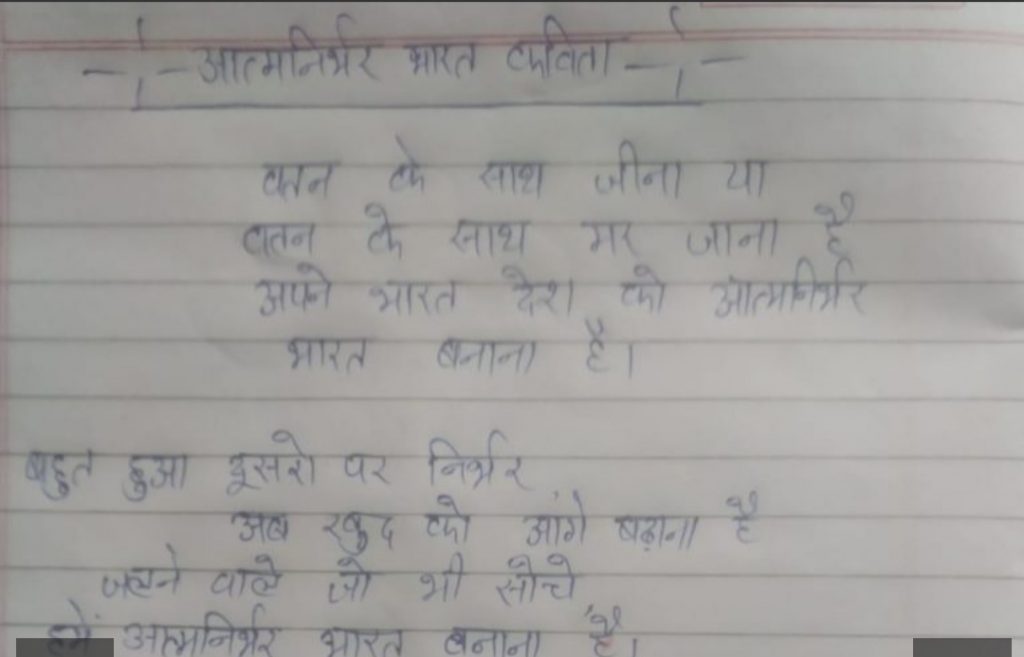 आत्मनिर्भर भारत कविता
वतन के साथ जीना या
वतन के साथ मर जाना है
अपने भारत देश को आत्मनिर्भर
भारत बनाना है।
बहुत हुआ दूसरो पर निर्भर
अब खुद को आंगे बढ़ाना है
जलने वाले जो भी सोचे
हमें आत्मनिर्भर भारत बनाना है।